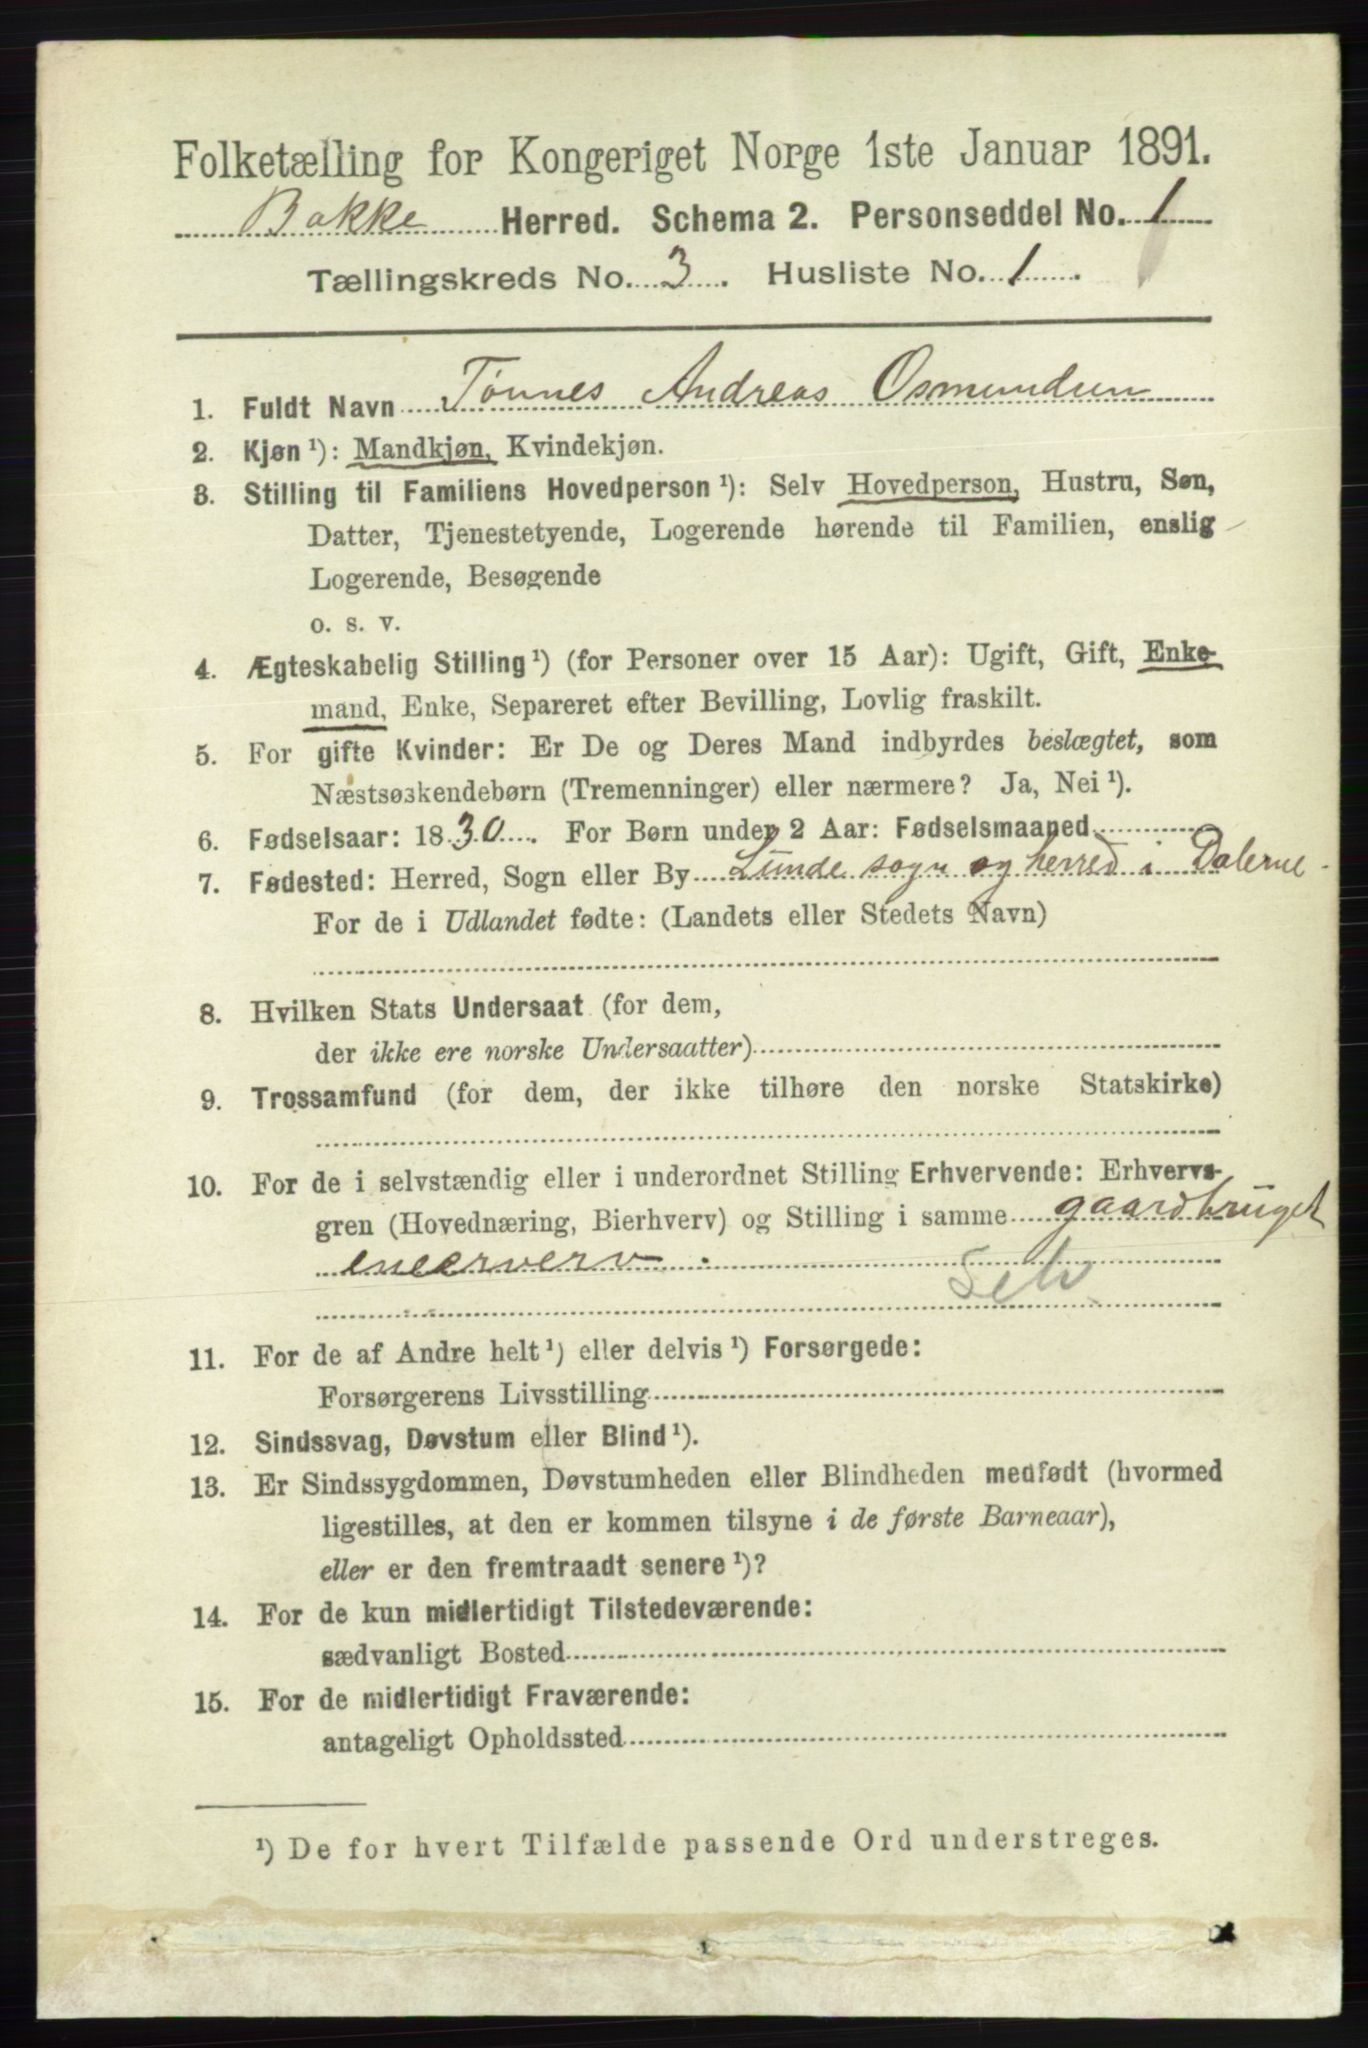 Folketælling for Kongeriget Norge 1ste Januar 1891.
Bakke Herred. Schema 2. Personseddel No. 1
Tællingskreds No. 3. Husliste No. 1.
1. Fuldt Navn Tønnes Andreas Osmundsen
2. Kjøn ¹): Mandkjøn, Kvindekjøn.
3. Stilling til Familiens Hovedperson ¹): Selv Hovedperson, Hustru, Søn,
Datter, Tjenestetyende, Logerende hørende til Familien, enslig
Logerende, Besøgende
o. s. v.
4. Ægteskabelig Stilling ¹) (for Personer over 15 Aar): Ugift, Gift, Enke-
mand, Enke, Separeret efter Bevilling, Lovlig fraskilt.
5. For gifte Kvinder: Er De og Deres Mand indbyrdes beslægtet, som
Næstsøskendebørn (Tremenninger) eller nærmere? Ja, Nei ¹).
6. Fødselsaar: 1830. For Børn under 2 Aar: Fødselsmaaned
7. Fødested: Herred, Sogn eller By Lunde sogn og herred i Dalerne
For de i Udlandet fødte: (Landets eller Stedets Navn)
8. Hvilken Stats Undersaat (for dem,
der ikke ere norske Undersaatter)
9. Trossamfund (for dem, der ikke tilhøre den norske Statskirke)
10. For de i selvstændig eller i underordnet Stilling Erhvervende: Erhvervs-
gren (Hovednæring, Bierhverv) og Stilling i samme gaardbruget
eneerverv.
Selv
11. For de af Andre helt ¹) eller delvis ¹) Forsørgede:
Forsørgerens Livsstilling
12. Sindssvag, Døvstum eller Blind ¹).
13. Er Sindssygdommen, Døvstumheden eller Blindheden medfødt (hvormed
ligestilles, at den er kommen tilsyne i de første Barneaar),
eller er den fremtraadt senere ¹)?
14. For de kun midlertidigt Tilstedeværende:
sædvanligt Bosted
15. For de midlertidigt Fraværende:
antageligt Opholdssted
¹) De for hvert Tilfælde passende Ord understreges.